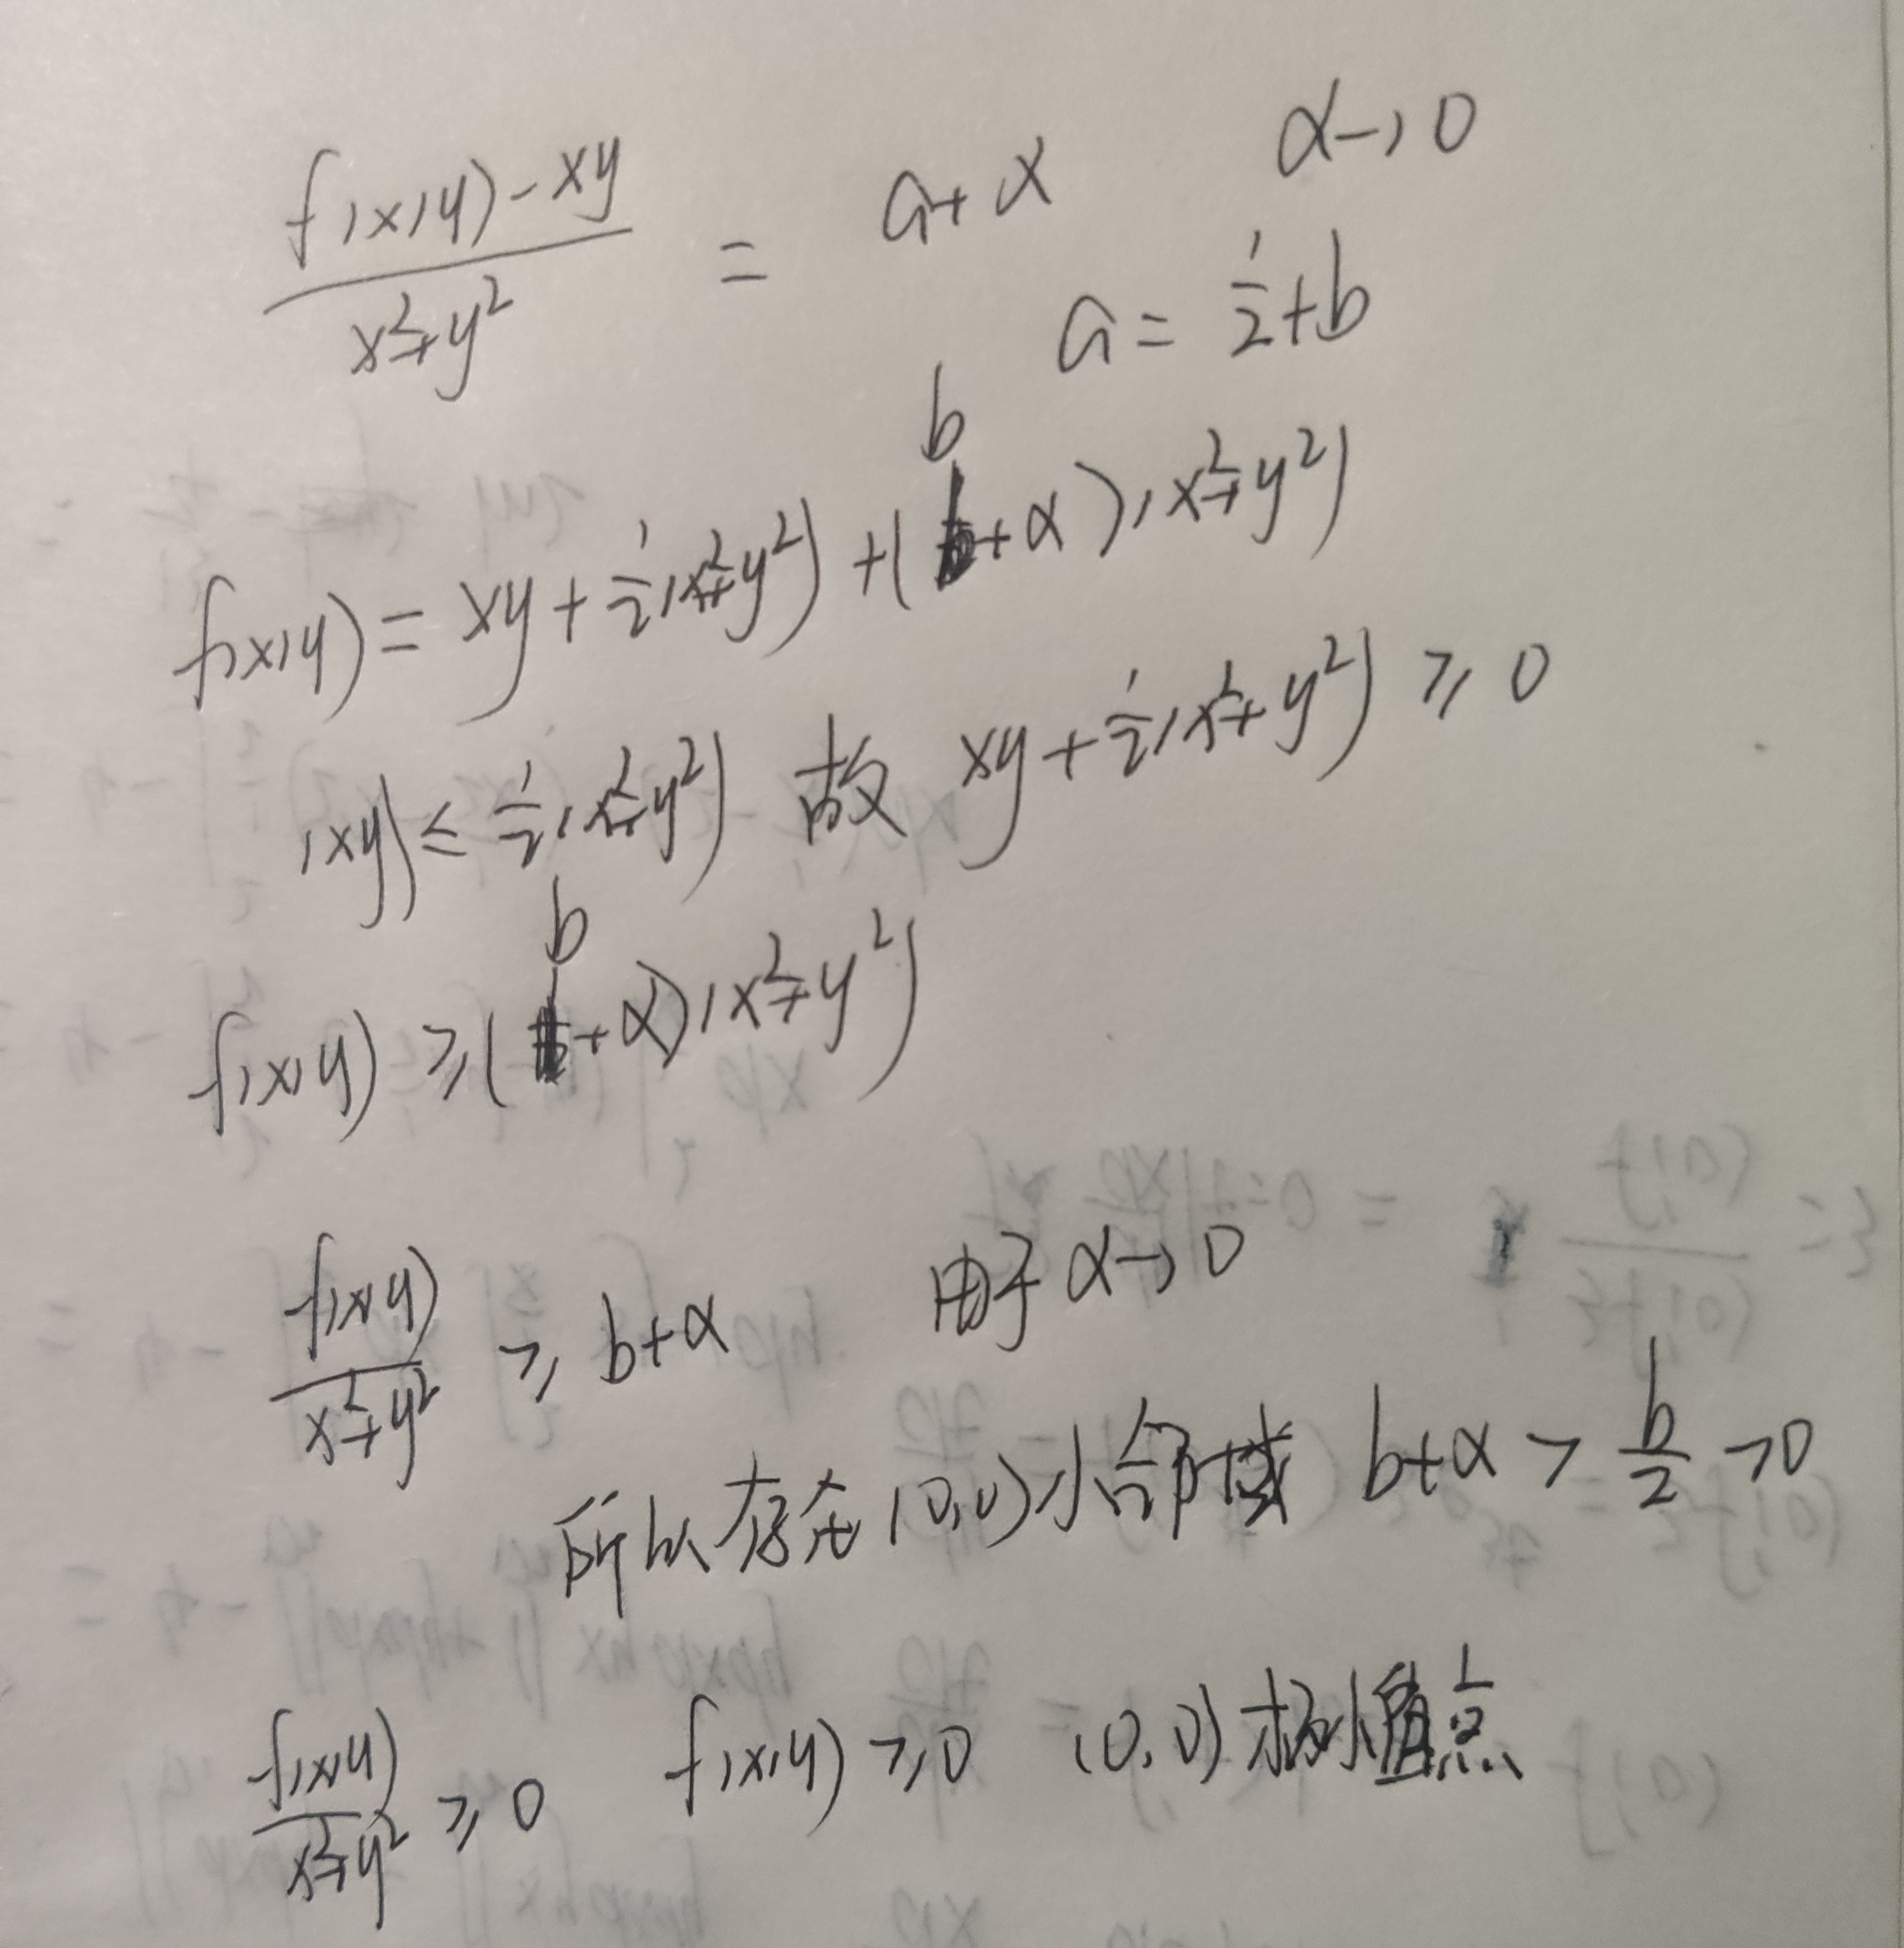 (f(x,y)-xy)/(x²+y²) = a+α α→0
a = 1/2+b
f(x,y) = xy + 1/2(x²+y²) + (b+α)(x²+y²)
|xy| ≤ 1/2(x²+y²) 故 xy + 1/2(x²+y²) ≥ 0
f(x,y) ≥ (b+α)(x²+y²)
f(x,y)/(x²+y²) ≥ b+α 由于 α→0
所以存在(0,0)小邻域 b+α > b/2 >0
f(x,y)/(x²+y²) ≥ 0 f(x,y) ≥ 0 (0,0) 极小值点